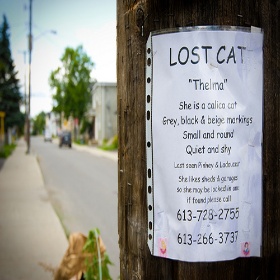 LOST CAT
"Thelma"
She is a calico cat
Grey, black & beige markings
Small and round
Quiet and shy
Last seen Pinhey & Ladouceur
She likes sheds & garages
so she may be locked in one
if found please call
613-728-2755
613-266-3737